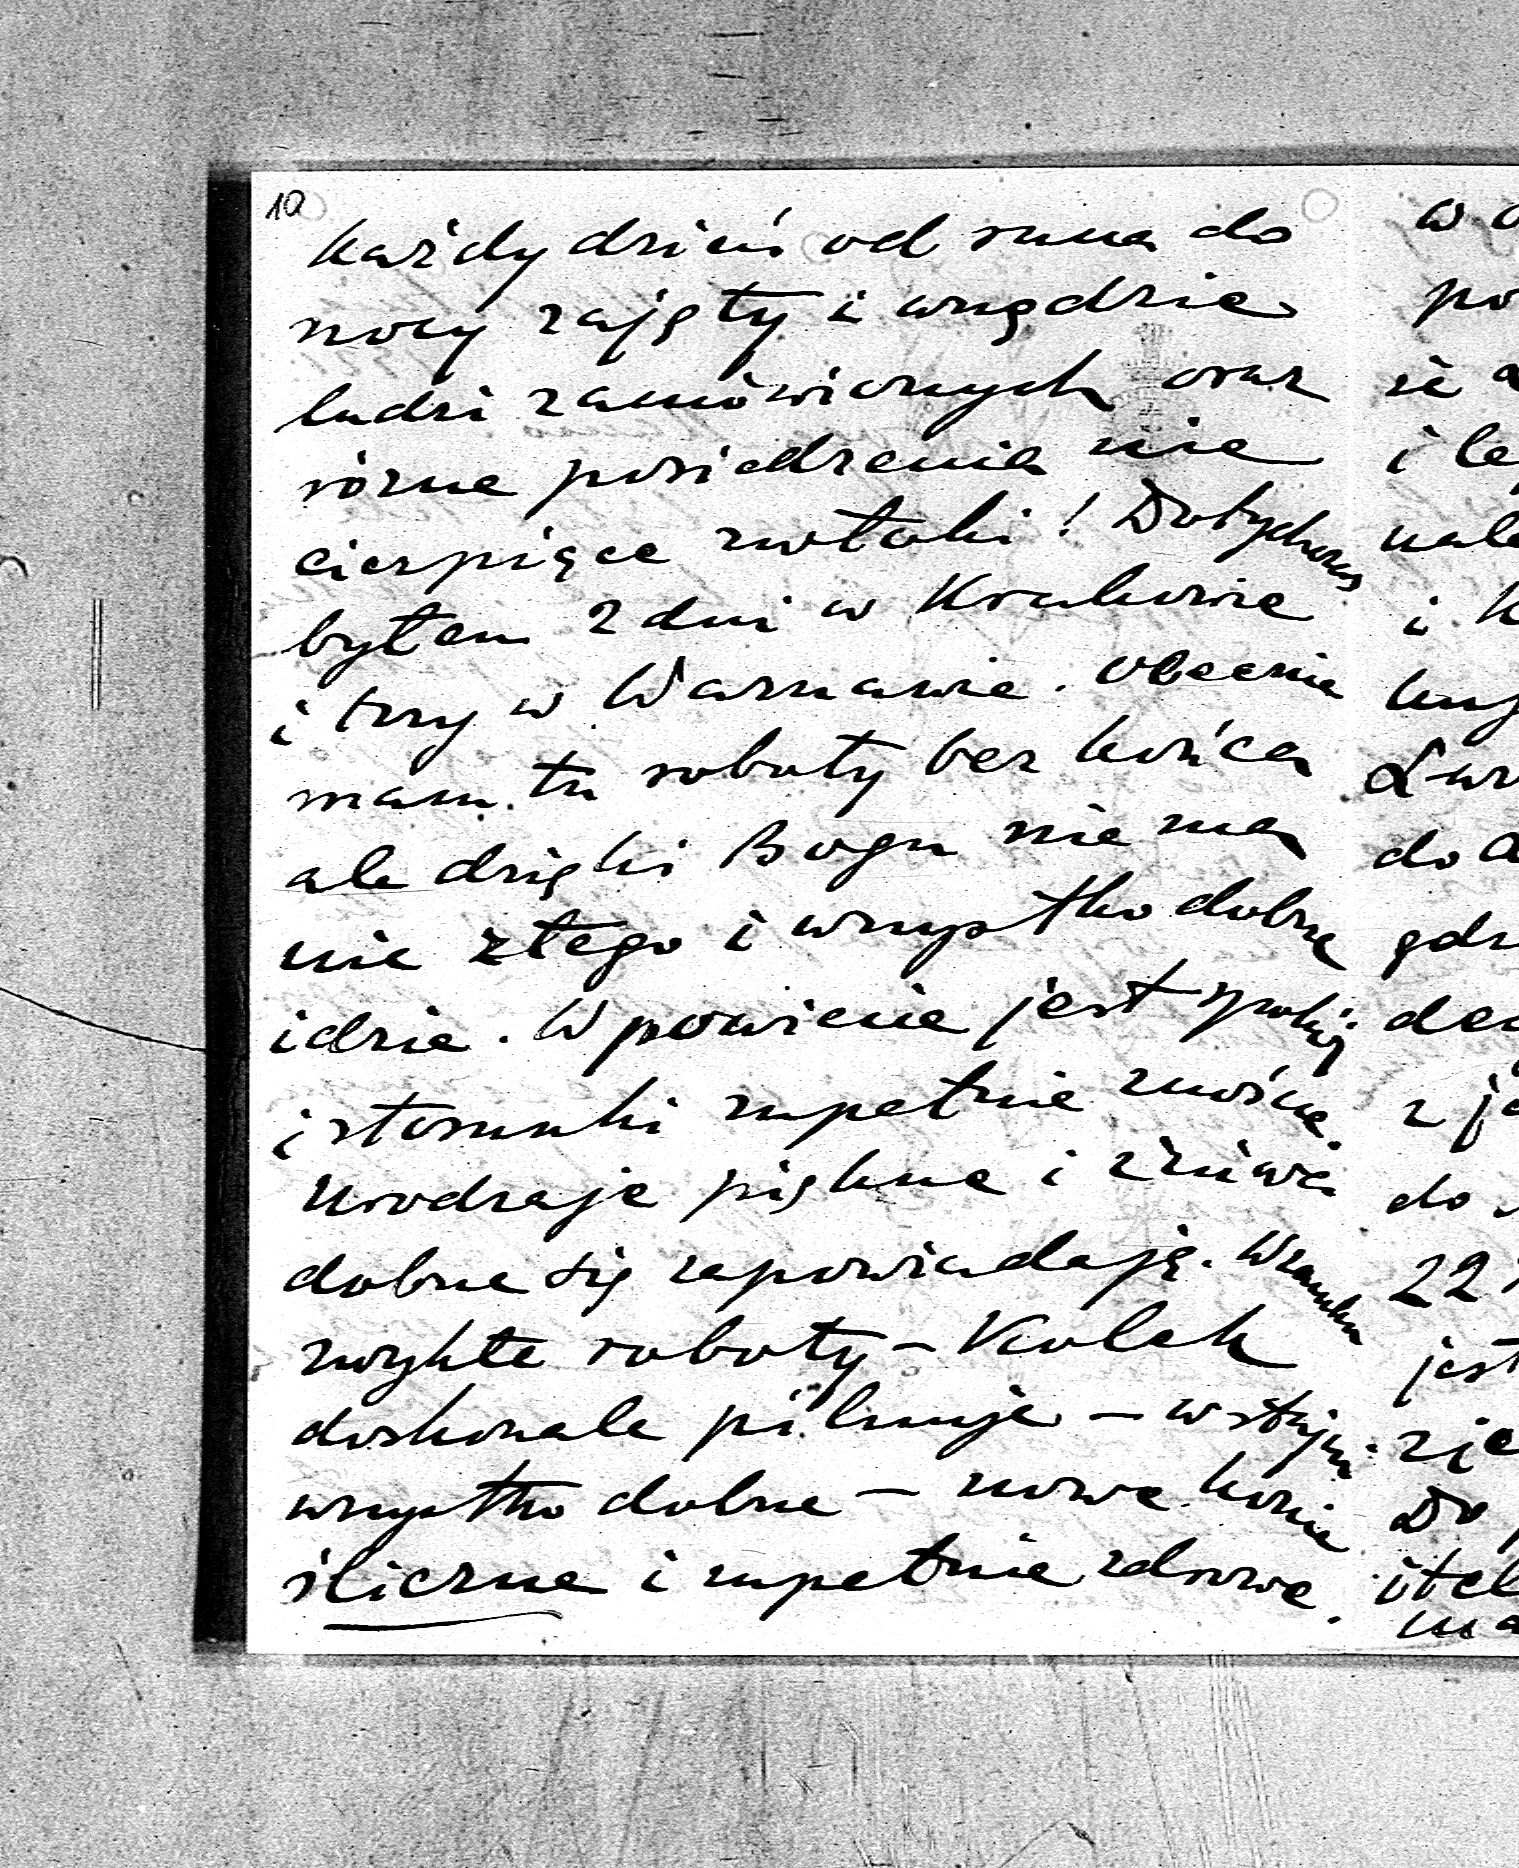 10
każdy dzień od rana do
nocy zajęty i wszędzie
ludzi zamówionych oraz
różne posiedzenia nie
cierpiące zwłoki! Dotychczas
byłem 2 dni w Krakowie
i trzy w Warszawie. Obecnie
mam tu roboty bez końca
ale dzięki Bogu nie ma
nic złego i wszystko dobrze
idzie. W powiecie jest spokój
i stosunki zupełnie znośne.
Urodzaje piękne i żniwa
dobrze się zapowiadają. W zamku
zwykłe roboty – Kolek
doskonale pilnuje – w stajni
wszystko dobrze – nowe konie
śliczne i zupełnie zdrowe.
w
po
i
i
do
22
jest
Do